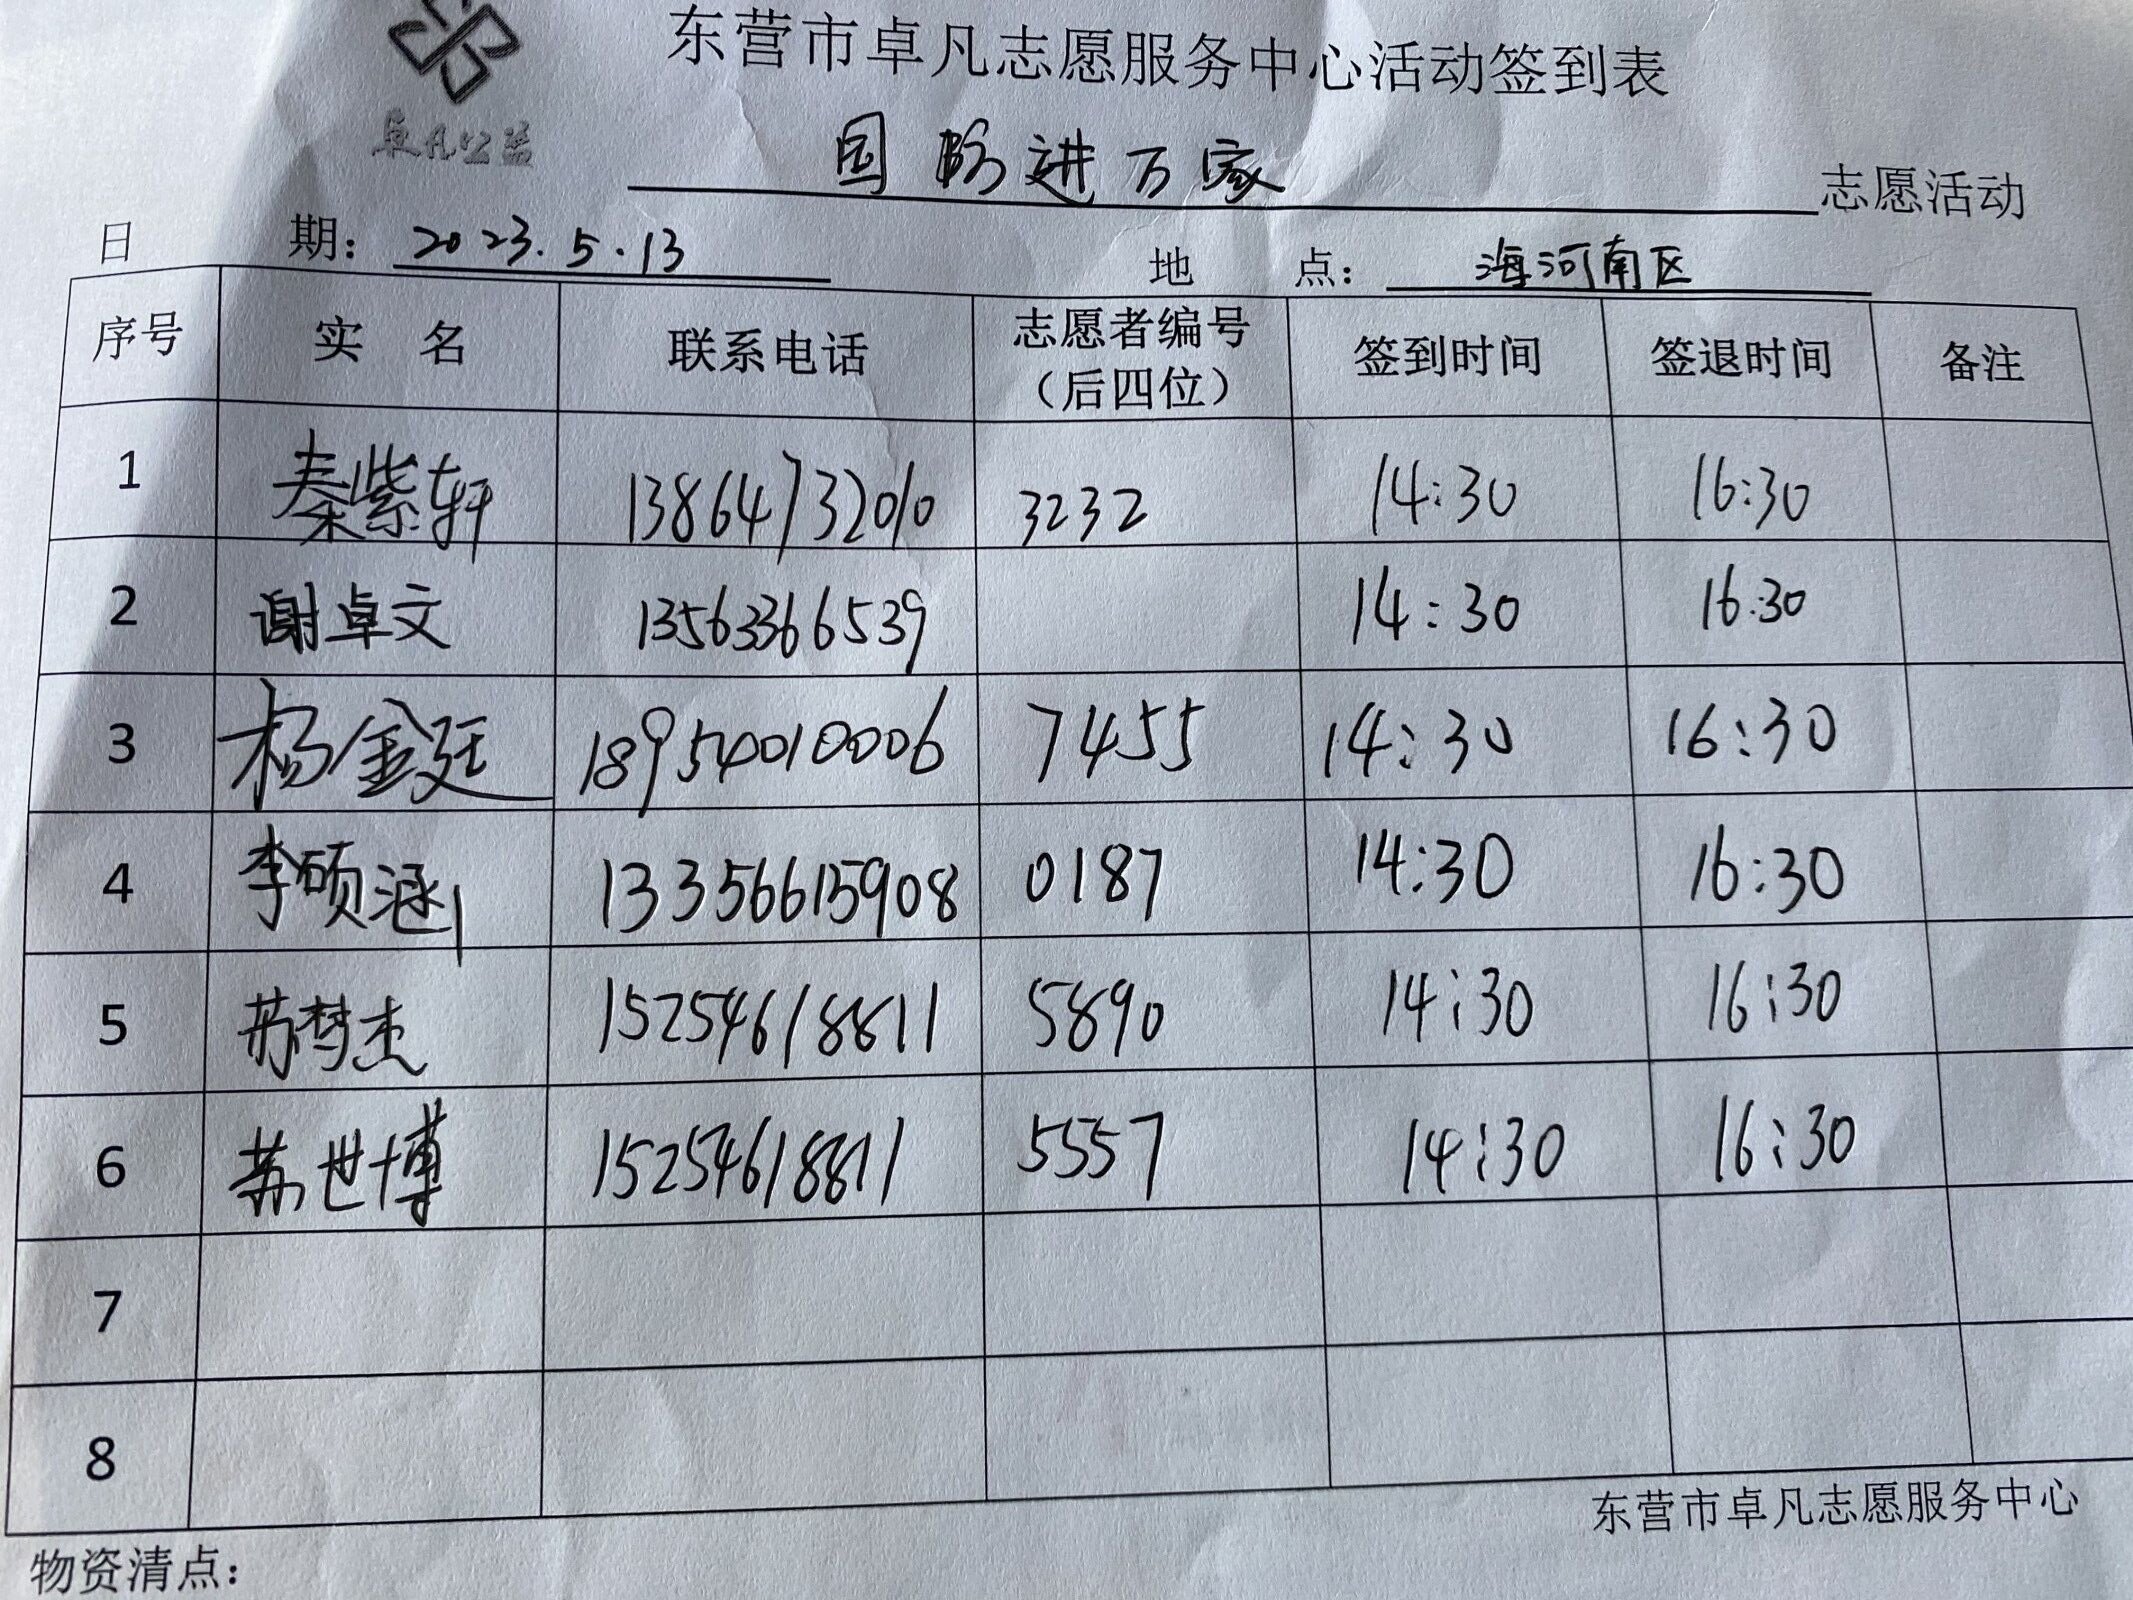 东营市卓凡志愿服务中心活动签到表
卓凡公益
国防进万家 志愿活动
日 期: 2023.5.13 地 点: 海河南区
序号 实 名 联系电话 志愿者编号(后四位) 签到时间 签退时间 备注
1 秦紫轩 13864732010 3232 14:30 16:30
2 谢卓文 13563366539 14:30 16:30
3 杨金廷 18954010006 7455 14:30 16:30
4 李硕涵 13356615908 0187 14:30 16:30
5 苏梦杰 15254618811 5890 14:30 16:30
6 苏世博 15254618811 5557 14:30 16:30
7
8
东营市卓凡志愿服务中心
物资清点: